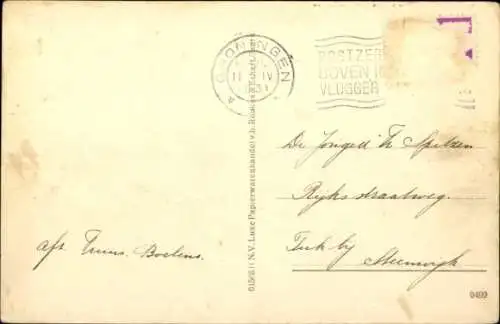 GRONINGEN
11 IV
31
POSTZEG
BOVEN
VLUGGER
N.V. Luxe Papierwarenhandel v.h. Roukes & Erhart
De Jongeh. Th. Spitzen
Rijksstraatweg.
Tuk by
Steenwijk
afz. Truus. Boelens.
0400